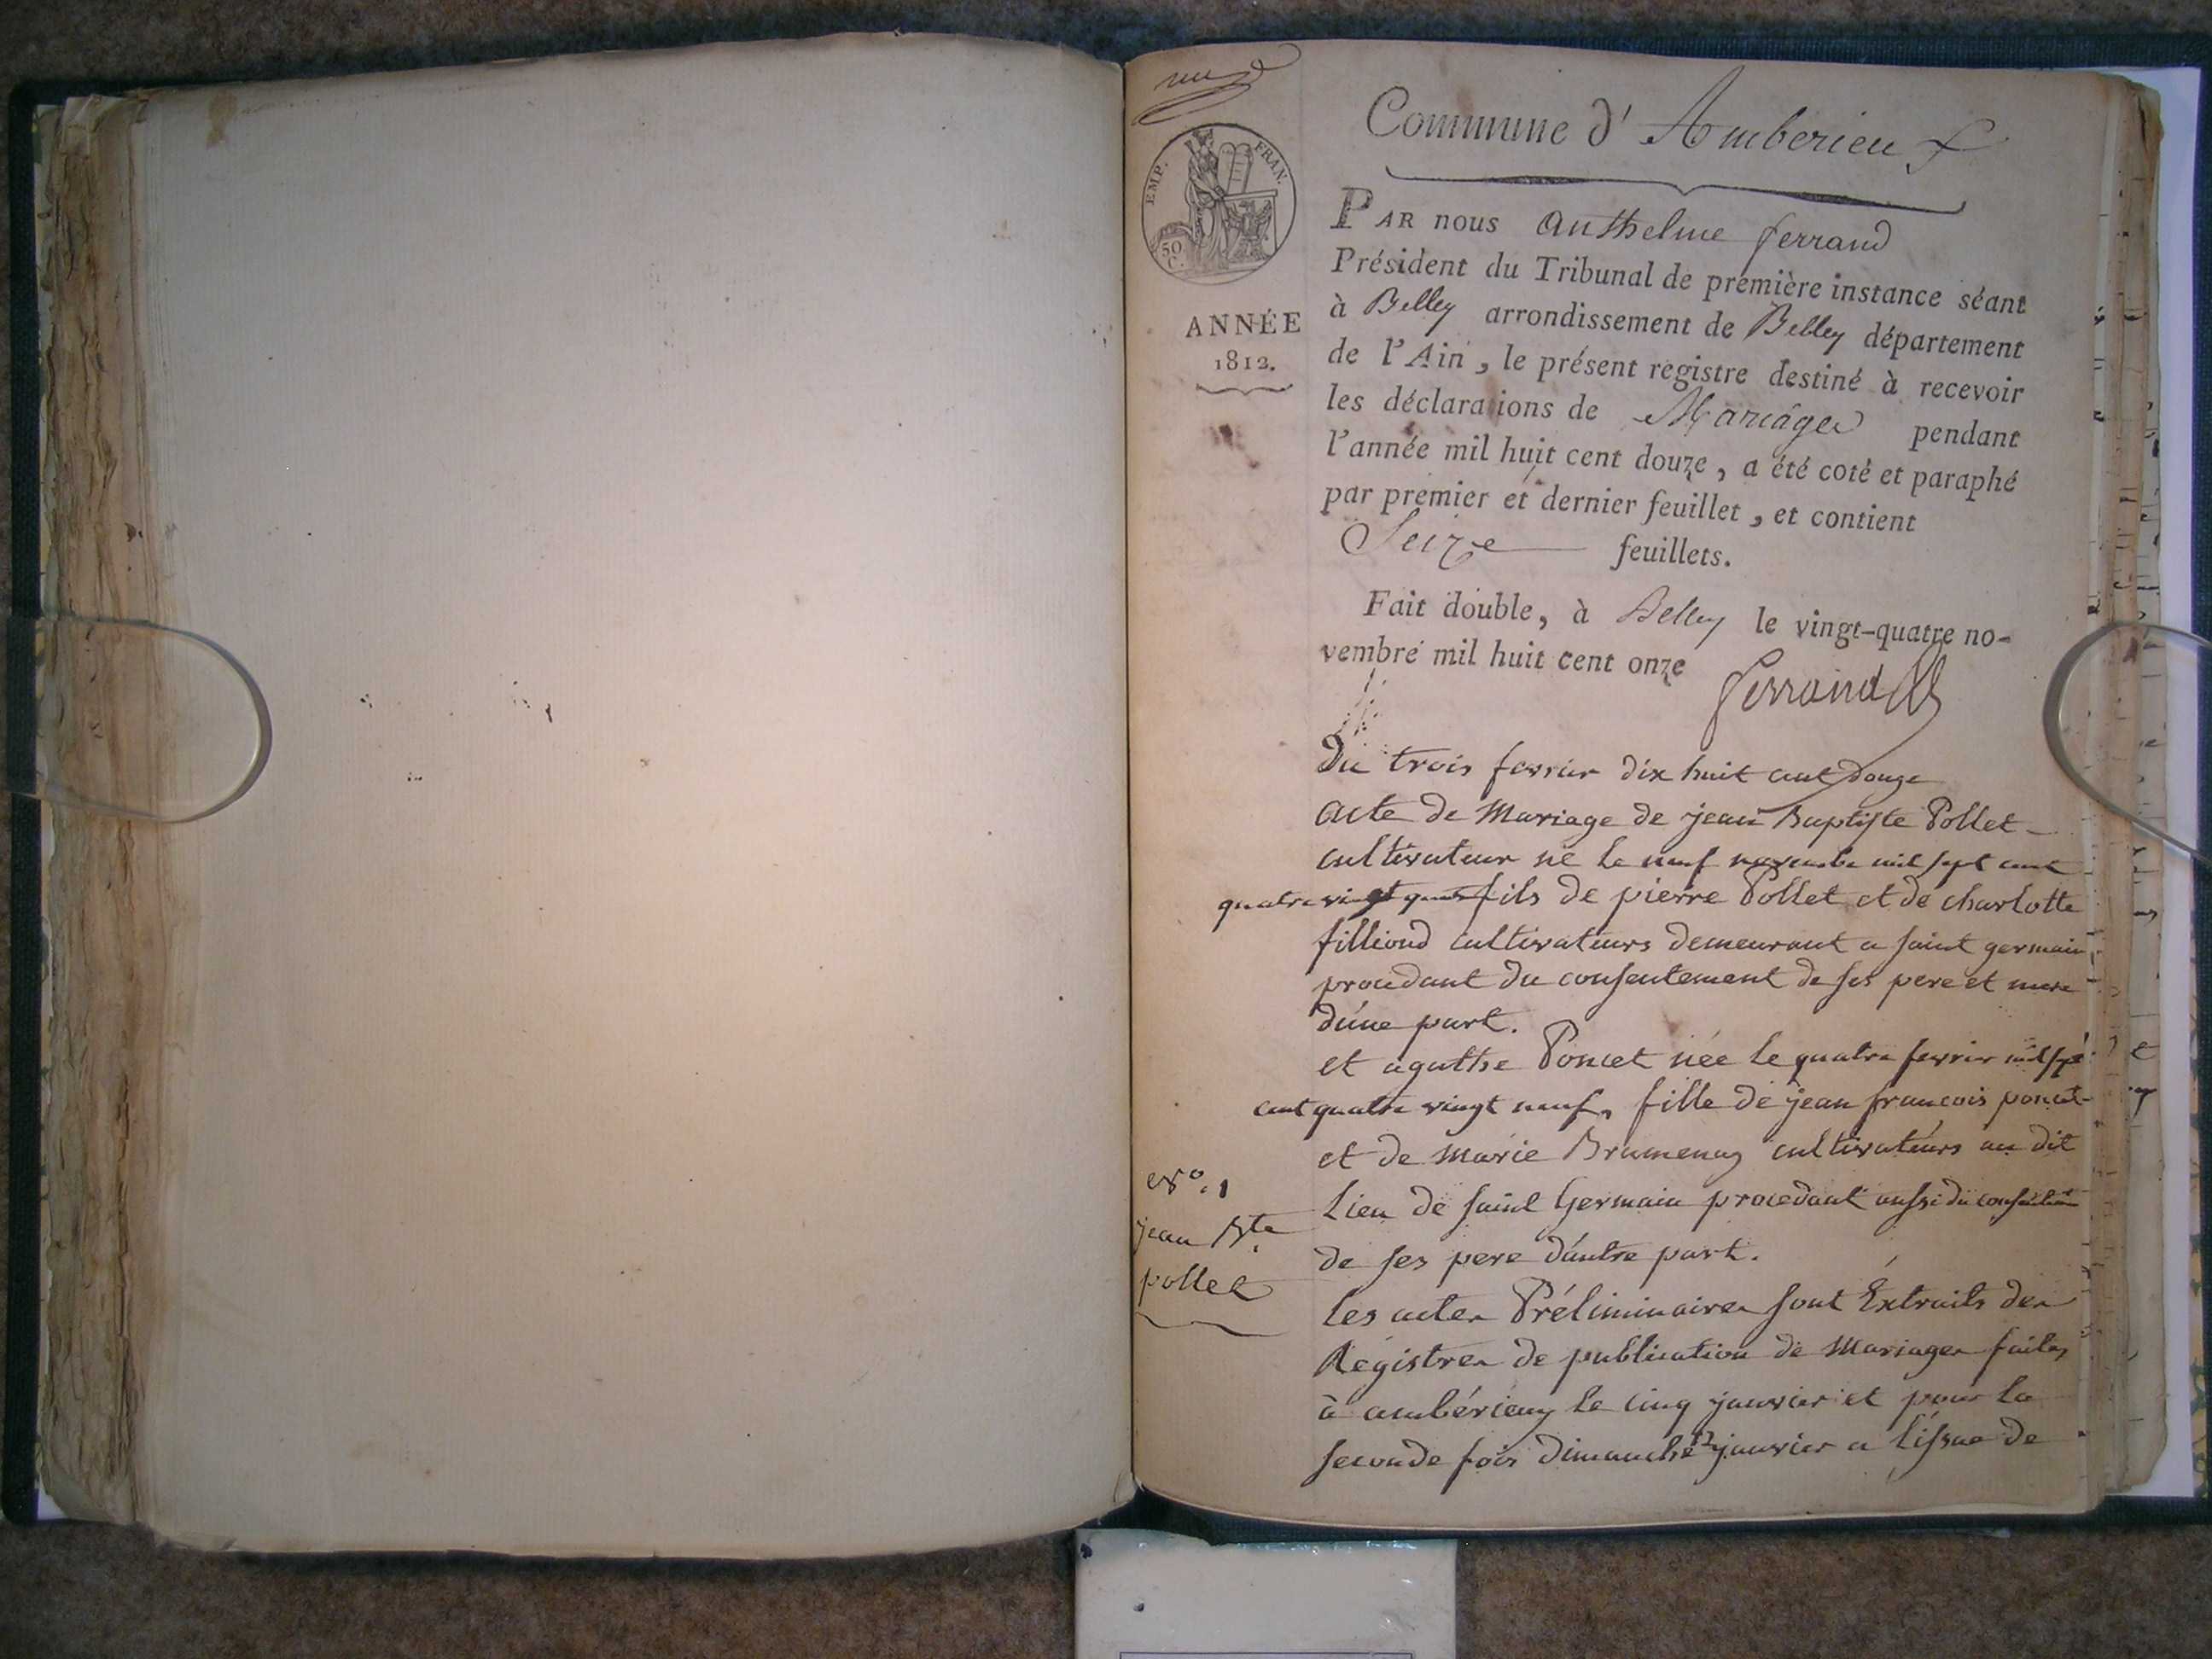 Commune d'Amberieux
EMP. FRAN.
50
C.
ANNÉE
1812.
PAR nous anthelme ferrand
Président du Tribunal de première instance séant
à Belley arrondissement de Belley département
de l'Ain, le présent registre destiné à recevoir
les déclarations de Mariages pendant
l'année mil huit cent douze, a été coté et paraphé
par premier et dernier feuillet, et contient
Seize feuillets.
Fait double, à Belley le vingt-quatre no-
vembre mil huit cent onze
Ferrand
Du trois fevrier dix huit cent douze
acte de Mariage de jean Baptiste Pollet
cultivateur né le neuf novembre mil sept cent
quatre vingt fils de pierre Pollet et de charlotte
filliond cultivateurs demeurant a saint germain
procedant du consentement de ses pere et mere
d'une part.
et agathe Poncet née le quatre fevrier mil sept
cent quatre vingt neuf, fille de jean francois poncet
et de Marie Bramenay cultivateurs au dit
Lieu de saint Germain procedant aussi du consentemt
de ses pere d'autre part.
Les actes Préliminaires sont Extraits des
Régistres de publication de Mariages faites
à ambérieux le cinq janvier et pour la
seconde fois dimanche 12 janvier a l'issue de
No. 1
jean Bte.
pollet